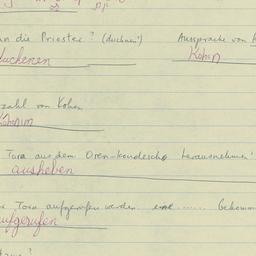 die Priester? (duchnen)
Aussprache von
duchenen
Kohin
zahl von Kohen
Kohanim
Tora aus dem Oren-hakodesch herausnehmen
ausheben
Tora aufgerufen werden eine ...... bekomm
aufgerufen